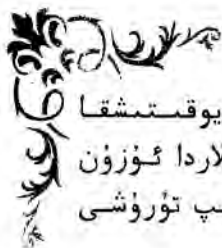 يوقىتىشقا
لاردا ئۇزۇن
پ تۇرۇشى